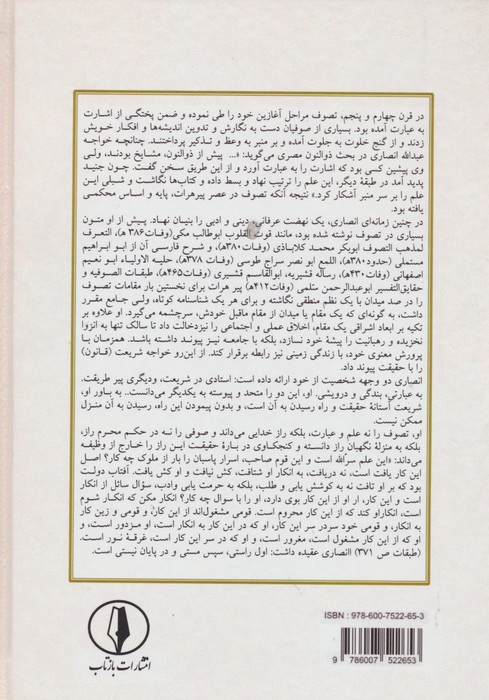 در قرن چهارم و پنجم، تصوف مراحل آغازین خود را طی نموده و ضمن پختگی از اشارت
به عبارت آمده بود. بسیاری از صوفیان دست به نگارش و تدوین اندیشه‌ها و افکار خویش
زدند و از گنج خلوت به جلوت آمده و بر منبر به وعظ و تذکیر پرداختند. چنانچه خواجه
عبدالله انصاری در بحث ذوالنون مصری می‌گوید: «... پیش از ذوالنون، مشایخ بودند، ولی
وی پیشین کسی بود که اشارت را به عبارت آورد و از این طریق سخن گفت. چون جنید
پدید آمد در طبقهٔ دیگر، این علم را ترتیب نهاد و بسط داده و کتاب‌ها نگاشت و شبلی این
علم را بر سر منبر آشکار کرد.» نتیجه آنکه تصوف در عصر پیرهرات، پایه و اساس محکمی
یافته بود.
در چنین زمانه‌ای انصاری، یک نهضت عرفانی، دینی و ادبی را بنیان نهاد. پیش از او متون
بسیاری در تصوف نوشته شده بود، مانند قوت القلوب ابوطالب مکی(وفات۳۸۶ ه‍)، التعرف
لمذهب التصوف ابوبکر محمد کلاباذی (وفات۳۸۰ه‍)، و شرح فارسی آن از ابو ابراهیم
مستملی (حدود۳۸۰ه‍)، اللمع ابو نصر سراج طوسی (وفات ۳۷۸ه‍)، حلیه الاولیاء ابو نعیم
اصفهانی (وفات۴۳۰ه‍)، رساله قشیریه، ابوالقاسم قشیری (وفات۴۶۵ه‍)، طبقات الصوفیه و
حقایق‌التفسیر ابوعبدالرحمن سُلمی (وفات۴۱۲ه‍) پیر هرات برای نخستین بار مقامات تصوف
را در صد میدان با یک نظم منطقی نگاشته و برای هر یک شناسنامه کوتاه، ولی جامع مقرر
داشت، به گونه‌ای که یک مقام یا میدان از مقام ماقبل خودش، سرچشمه می‌گیرد. او علاوه بر
تکیه بر ابعاد اشراقی یک مقام، اخلاق عملی و اجتماعی را نیزدخالت داد تا سالک تنها به انزوا
نخزیده و رهبانیت را پیشهٔ خود نسازد، بلکه با جامعه نیز پیوند داشته باشد. همزمان با
پرورش معنوی خود، با زندگی زمینی نیز رابطه برقرار کند. از این‌رو خواجه شریعت (قانون)
را با حقیقت پیوند داد.
انصاری دو وجهه شخصیت از خود ارائه داده است: استادی در شریعت، ودیگری پیر طریقت.
به عبارتی، بندگی و درویشی. او، این دو را متحد و پیوسته به یکدیگر می‌دانست.. به باور او،
شریعت آستانهٔ حقیقت و راه رسیدن به آن است، و بدون پیمودن این راه، رسیدن به آن منزل
ممکن نیست.
او، تصوف را نه علم و عبارت، بلکه راز خدایی می‌داند و صوفی را نه در حکم محرم راز،
بلکه به منزلهٔ نگهبان راز دانسته و کنجکاوی در بارهٔ حقیقت این راز را خارج از وظیفه
می‌داند: «این علم سرّالله است و این قوم صاحب، اسرار پاسبان را باز از ملوک چه کار؟ اصل
این کار یافت است، نه دریافت، به انکار او شتافت، کش نیافت و او کش یافت. آفتاب دولت
بود که بر او تافت نه به کوشش یابی و طلب، بلکه به حرمت یابی وادب، سؤال سائل از انکار
است و این کار، ار او از این کار بوی دارد، او را با سوال چه کار؟ انکار مکن که انکار شوم
است، انکاراو کند که از این کار محروم است. قومی مشغول‌اند از این کار، و قومی و زین کار
به انکار، و قومی خود سردر سر این کار، او که در این کار به انکار است، او مزدور است، و
او که از این کار مشغول است، مغرور است، و او که در سر این کار است، غرقهٔ نور است.
(طبقات ص ۳۷۱) انصاری عقیده داشت: اول راستی، سپس مستی و در پایان نیستی است.
ISBN: 978-600-7522-65-3
9 786007 522653
انتشارات بازتاب